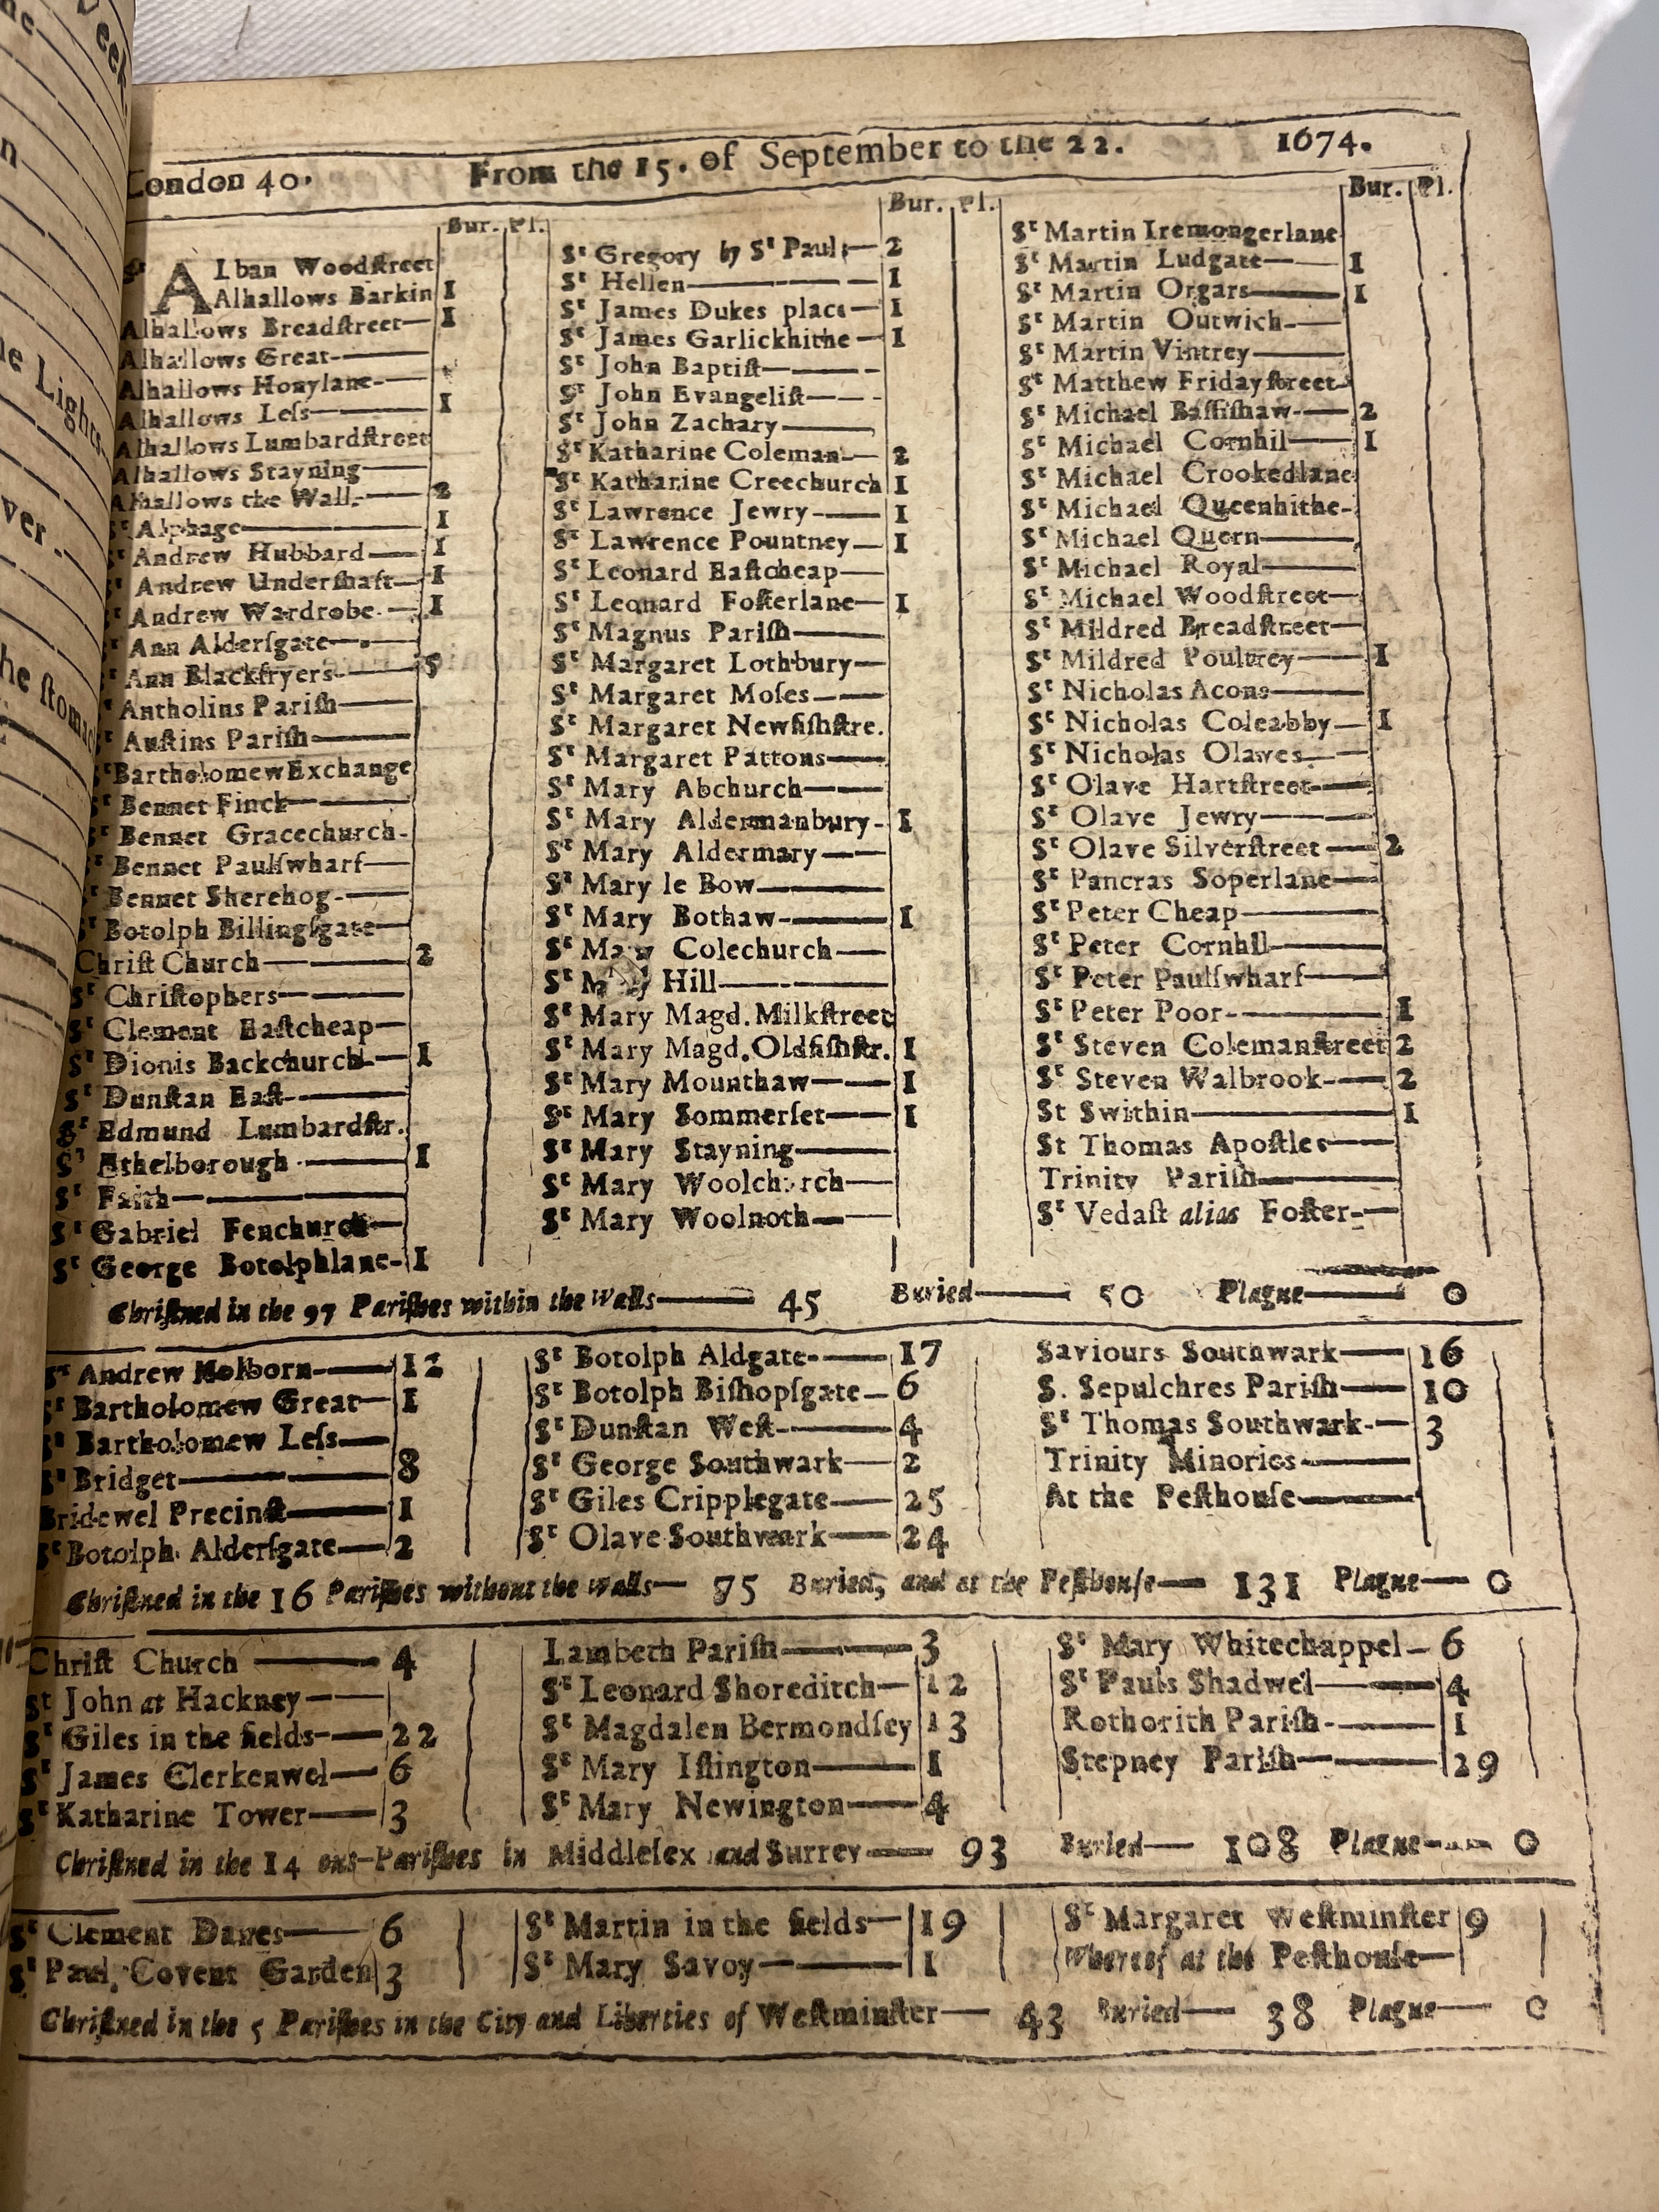 London 40. From the 15. of September to the 22. 1674.
Bur. Pl.
St ALban Woodſtreet
Alhallows Barkin 1
Alhallows Breadſtreet— 1
Alhallows Great-——
Alhallows Honylane-——
Alhallows Leſs——— 1
Alhallows Lumbardſtreet
Alhallows Stayning——
Alhallows the Wall-—— 2
St Alphage———— 1
St Andrew Hubbard—— 1
St Andrew Underſhaft— 1
St Andrew Wardrobe-— 1
St Ann Alderſgate——
St Ann Blackfryers-—— 5
St Antholins Pariſh——
St Auſtins Pariſh———
St Bartholomew Exchange
St Bennet Finck———
St Bennet Gracechurch-
St Bennet Paulſwharf—
St Bennet Sherehog-——
St Botolph Billingſgate—
Chriſt Church———— 2
St Chriſtophers————
St Clement Eaſtcheap—
St Dionis Backchurch-— 1
St Dunſtan Eaſt-———
St Edmund Lumbardſtr.
St Ethelborough-——— 1
St Faith—————
St Gabriel Fenchurch—
St George Botolphlane- 1
Bur. Pl.
St Gregory by St Pauls— 2
St Hellen———— 1
St James Dukes place— 1
St James Garlickhithe— 1
St John Baptiſt———-
St John Evangeliſt——-
St John Zachary———
St Katharine Coleman-— 2
St Katharine Creechurch 1
St Lawrence Jewry—— 1
St Lawrence Pountney— 1
St Leonard Eaſtcheap—
St Leonard Foſterlane— 1
St Magnus Pariſh——
St Margaret Lothbury—
St Margaret Moſes——
St Margaret Newfiſhſtre.
St Margaret Pattons——
St Mary Abchurch——
St Mary Aldermanbury- 1
St Mary Aldermary——
St Mary le Bow———
St Mary Bothaw-—— 1
St Mary Colechurch—
St Mary Hill————
St Mary Magd. Milkſtreet
St Mary Magd. Oldfiſhſtr. 1
St Mary Mounthaw—— 1
St Mary Sommerſet—— 1
St Mary Stayning——
St Mary Woolchurch—
St Mary Woolnoth——
Bur. Pl.
St Martin Iremongerlane
St Martin Ludgate—— 1
St Martin Orgars—— 1
St Martin Outwich-—
St Martin Vintrey——
St Matthew Fridayſtreet-
St Michael Baſſiſhaw-— 2
St Michael Cornhil—— 1
St Michael Crookedlane
St Michael Queenhithe-
St Michael Quern——
St Michael Royal——
St Michael Woodſtreet—
St Mildred Breadſtreet—
St Mildred Poultrey—— 1
St Nicholas Acons——
St Nicholas Coleabby— 1
St Nicholas Olawes-—
St Olave Hartſtreet——
St Olave Jewry———
St Olave Silverſtreet— 2
St Pancras Soperlane—
St Peter Cheap———
St Peter Cornhil——
St Peter Paulſwharf—
St Peter Poor-——— 1
St Steven Colemanſtreet 2
St Steven Walbrook-— 2
St Swithin———— 1
St Thomas Apoſtles—
Trinity Pariſh———
St Vedaſt alias Foſter-—
Chriſtned in the 97 Pariſhes within the Walls—— 45 Buried—— 50 Plague—— 0
St Andrew Holborn-—— 12
St Bartholomew Great— 1
St Bartholomew Leſs—
St Bridget———— 8
Bridewel Precinct—— 1
St Botolph Alderſgate— 2
St Botolph Aldgate-—— 17
St Botolph Biſhopſgate— 6
St Dunſtan Weſt-—— 4
St George Southwark— 2
St Giles Cripplegate— 25
St Olave Southwark— 24
Saviours Southwark— 16
S. Sepulchres Pariſh— 10
St Thomas Southwark-— 3
Trinity Minories-——
At the Peſthouſe——
Chriſtned in the 16 Pariſhes without the Walls— 75 Buried, and at the Peſthouſe— 131 Plague— 0
Chriſt Church——— 4
St John at Hackney——
St Giles in the fields-— 22
St James Clerkenwel— 6
St Katharine Tower— 3
Lambeth Pariſh——— 3
St Leonard Shoreditch— 12
St Magdalen Bermondſey 13
St Mary Iſlington—— 1
St Mary Newington— 4
St Mary Whitechappel— 6
St Pauls Shadwel—— 4
Rothorith Pariſh-—— 1
Stepney Pariſh——— 29
Chriſtned in the 14 out-Pariſhes in Middleſex and Surrey— 93 Buried— 108 Plague— 0
St Clement Danes—— 6
St Paul Covent Garden 3
St Martin in the fields— 19
St Mary Savoy——— 1
St Margaret Weſtminſter 9
Whereof at the Peſthouſe—
Chriſtned in the 5 Pariſhes in the City and Liberties of Weſtminſter— 43 Buried— 38 Plague— 0